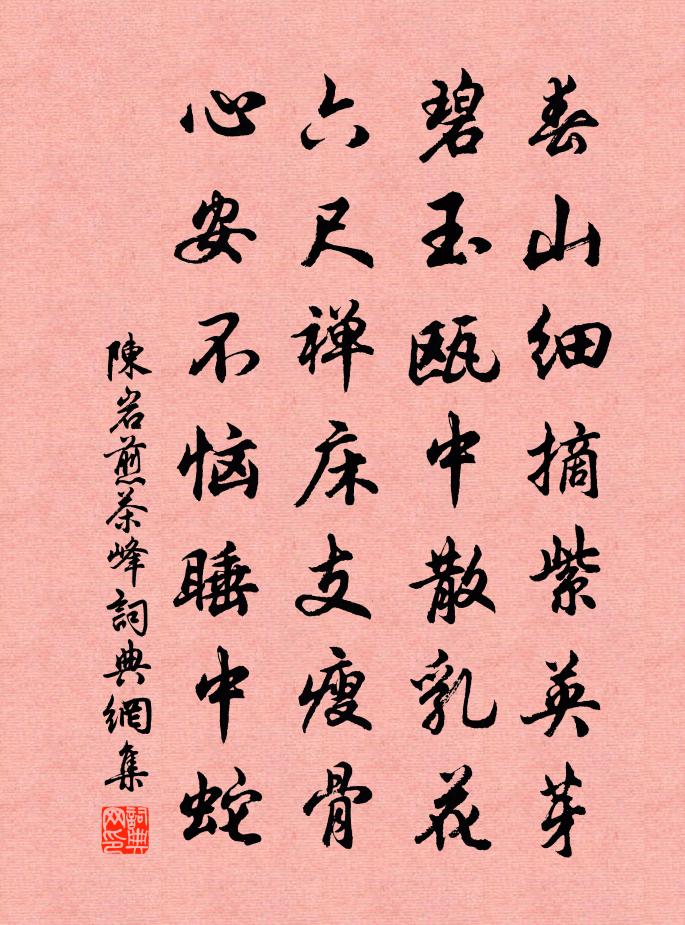 春山细摘紫英芽
碧玉瓯中散乳花
六尺禅床支瘦骨
心安不恼睡中蛇
陳岩煎茶峰詞典網集
詞典
网印